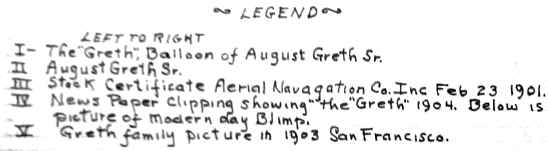 ~ LEGEND ~
LEFT TO RIGHT
I- The "Greth", Balloon of August Greth Sr.
II August Greth Sr.
III Stock Certificate Aerial Navagation Co. Inc Feb 23 1901.
IV News Paper Clipping showing "the "Greth" 1904. Below is
picture of modern day Blimp.
V Greth family picture in 1903 San Francisco.